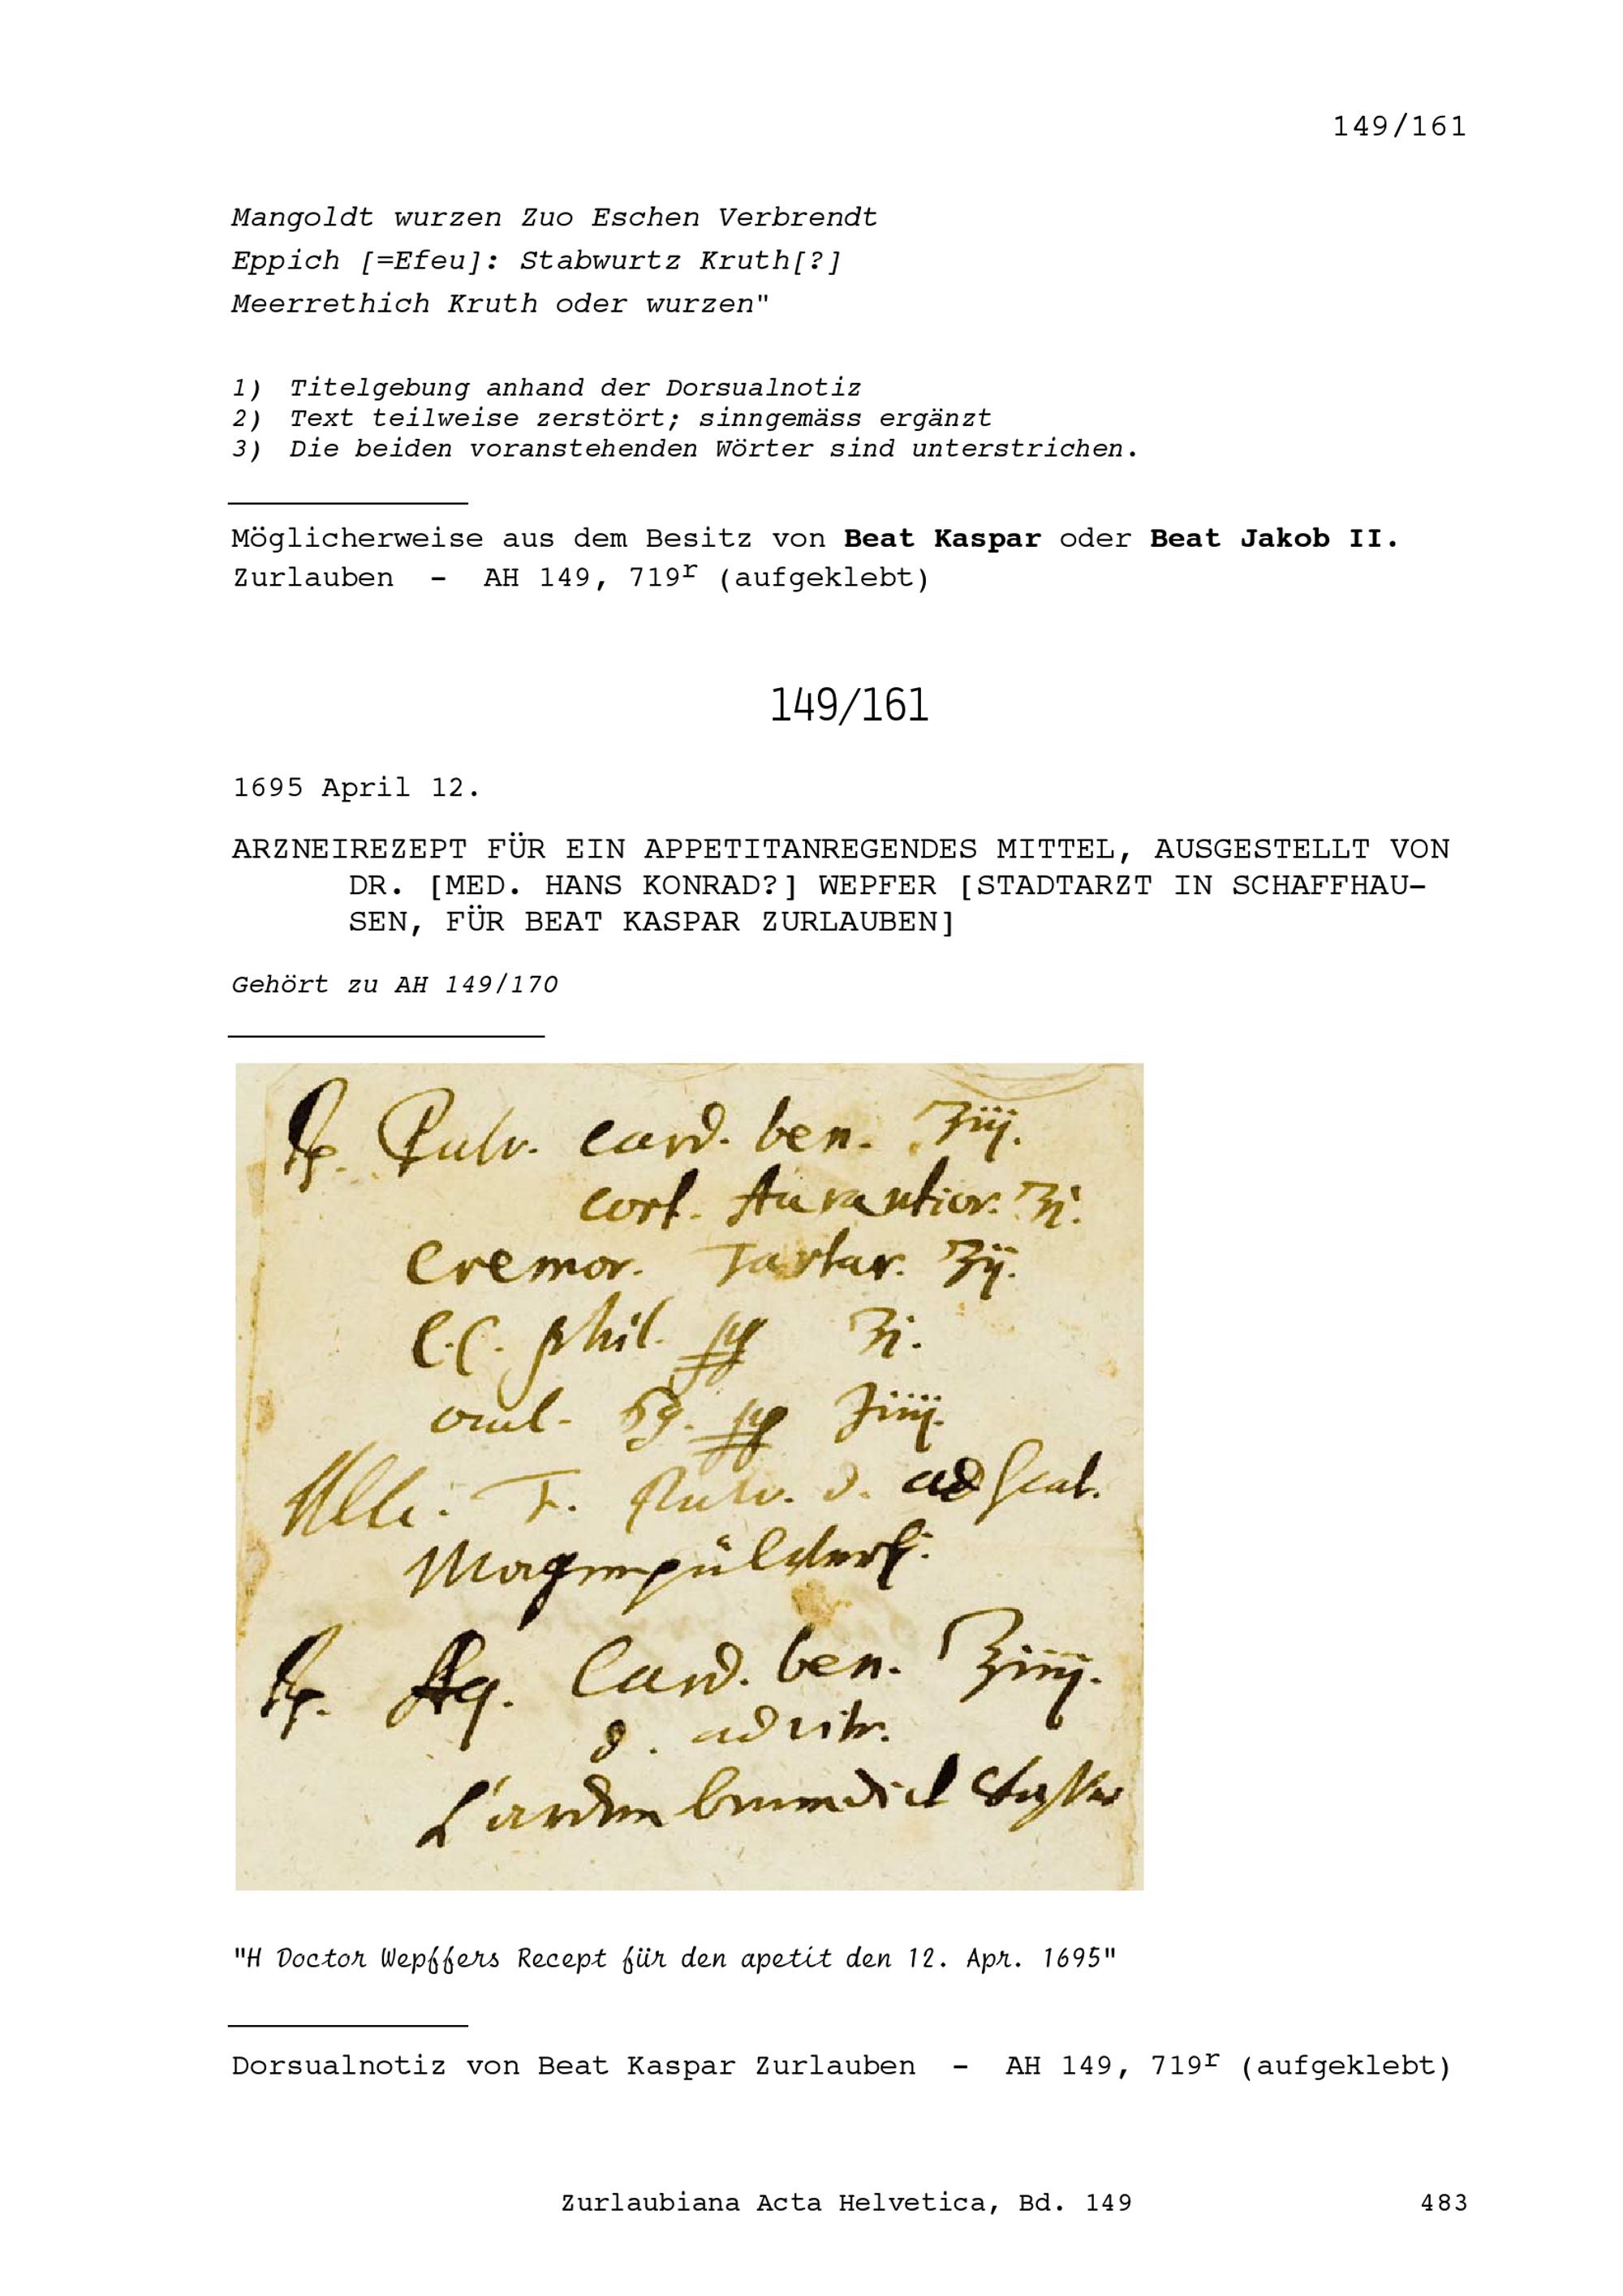 149/161
Mangoldt wurzen Zuo Eschen Verbrendt
Eppich [=Efeu]: Stabwurtz Kruth[?]
Meerrethich Kruth oder wurzen"
1) Titelgebung anhand der Dorsualnotiz
2) Text teilweise zerstört; sinngemäss ergänzt
3) Die beiden voranstehenden Wörter sind unterstrichen.
Möglicherweise aus dem Besitz von Beat Kaspar oder Beat Jakob II.
Zurlauben - AH 149, 719r (aufgeklebt)
149/161
1695 April 12.
ARZNEIREZEPT FÜR EIN APPETITANREGENDES MITTEL, AUSGESTELLT VON
DR. [MED. HANS KONRAD?] WEPFER [STADTARZT IN SCHAFFHAU-
SEN, FÜR BEAT KASPAR ZURLAUBEN]
Gehört zu AH 149/170
℞. Pulv. Card. ben. ʒiij.
cort. Aurantior. ʒi.
Cremor. Tartar. ʒij.
C.C. phil. ʒi.
ad Scat.
℞. Aq. Card. ben.
d. ad vitr.
"H Doctor Wepffers Recept für den apetit den 12. Apr. 1695"
Dorsualnotiz von Beat Kaspar Zurlauben - AH 149, 719r (aufgeklebt)
Zurlaubiana Acta Helvetica, Bd. 149 483